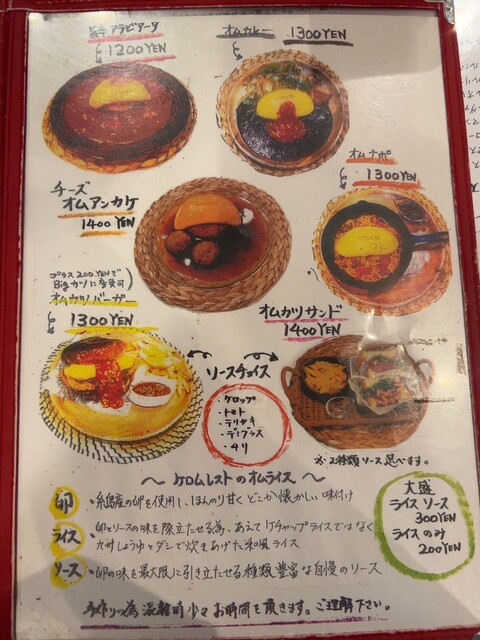 旨辛アラビアータ
1200YEN
オムカレー 1300YEN
オムナポ
1300YEN
チーズ
オムアンカケ
1400 YEN
プラス200YENで
Bigカツに変更可
オムカツバーガー
1300YEN
オムカツサンド
1400YEN
ソースチョイス
ケロップ
・トマト
・テリヤキ
・デミグラス
・チリ
※2種類ソース選べます。
～ケロムレストのオムライス～
卵・糸島産の卵を使用し、ほんのり甘くどこか懐かしい味付け
ライス・卵とソースの味を際立たせる為、あえてケチャップライスではなく
九州しょうゆとダシで炊きあげた和風ライス
ソース・卵の味を最大限に引き立たせる種類豊富な自慢のソース
大盛
ライス ソース
300YEN
ライスのみ
200YEN
手作りの為混雑時少々お時間を頂きます。ご理解下さい。